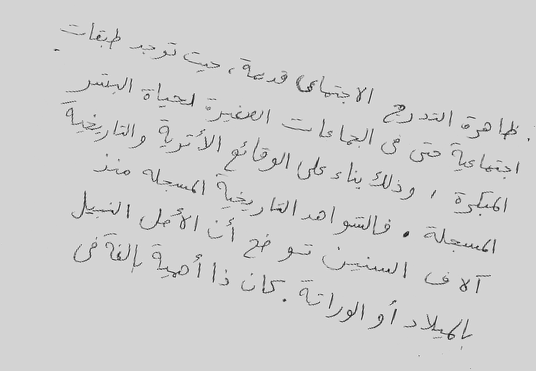 . ظاهرة التدرج الاجتماعى قديمة ، حيث توجد طبقات
اجتماعية حتى فى الجماعات الصغيرة لحياة البشر
المبكرة ، وذلك بناء على الوقائع الأثرية والتاريخية
المسجلة . فالشواهد التاريخية المسجله منذ
آلاف السنين توضح أن الأصل النبيل
بالميلاد أو الوراثة . كان ذا أهمية بالغة فى